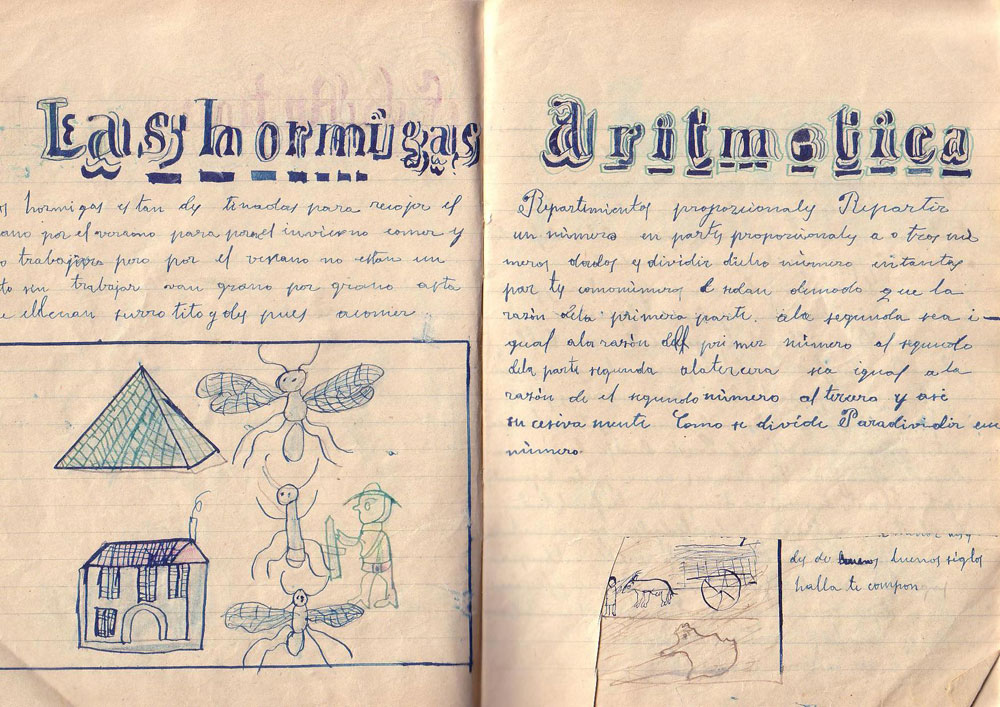 Las hormigas
os hormigas estan des tinadas para recojer el
ano por el verano para poreel invierno comer y
o trabajiva pero por el verano no estan un
to sin trabajar van grano por grano asta
e elllenan surro tito y des pues acomer
Aritmetica
Repartimientos proporzionals Repartir
un número en parts proporzionals a o tros nú
meros dados es dividir dicho número en tantas
par tes como números se dan de modo que la
razón dela primera parte ala segunda sea i-
gual ala razón del primer número al segundo
dela parte segunda alatercera sea igual a la
razón de el segundo número al tercero y así
su cesiva mente Como se divide Para dividir un
número.
des de buenos buenos siglos
halla te compon